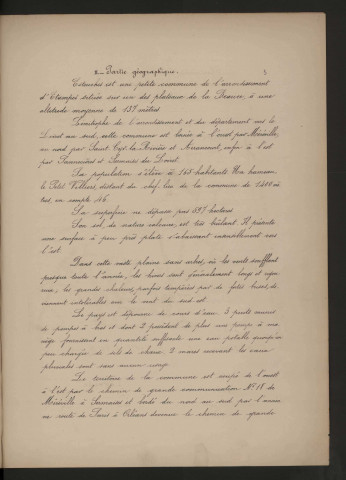 2 - Partie géographique.
Estouches est une petite commune de l'arrondissement
d'Étampes située sur un des plateaux de la Beauce, à une
altitude moyenne de 137 mètres
Limitrophe de l'arrondissement et du département vers le
Loiret au sud, cette commune est limitée à l'ouest par Méréville,
au nord par Saint Cyr la Rivière et Arrancourt, enfin à l'est
par et Sermaises du Loiret.
Sa population s'élève à 165 habitants Un hameau,
le Petit Villiers, distant du chef-lieu de la commune de 2400 mè
tres, en compte 46
Sa superficie ne dépasse pas 697 hectares
Son sol, de nature calcaire, est très brûlant Il présente
une surface à peu près plate s'abaissant insensiblement vers
l'est.
Dans cette vaste plaine sans arbres, où les vents soufflent
presque toute l'année, les hivers sont généralement longs et rigou
reux, les grandes chaleurs, parfois tempérées par de fortes brises, de
viennent intolérables avec le vent du sud est.
Le pays est dépourvu de cours d'eau. 3 puits munis
de pompes à bras et dont 2 possèdent de plus une pompe à ma
nège fournissent en quantité suffisante une eau potable quoiqu'un
peu chargée de sels de chaux. 2 mares recevant les eaux
pluviales sont sans aucun usage.
Le territoire de la commune est coupé de l'ouest
à l'est par le chemin de grande communication N° 18 de
Méréville à Sermaises et bordé du nord au sud par l'ancien
ne route de Paris à Orléans devenue le chemin de grande